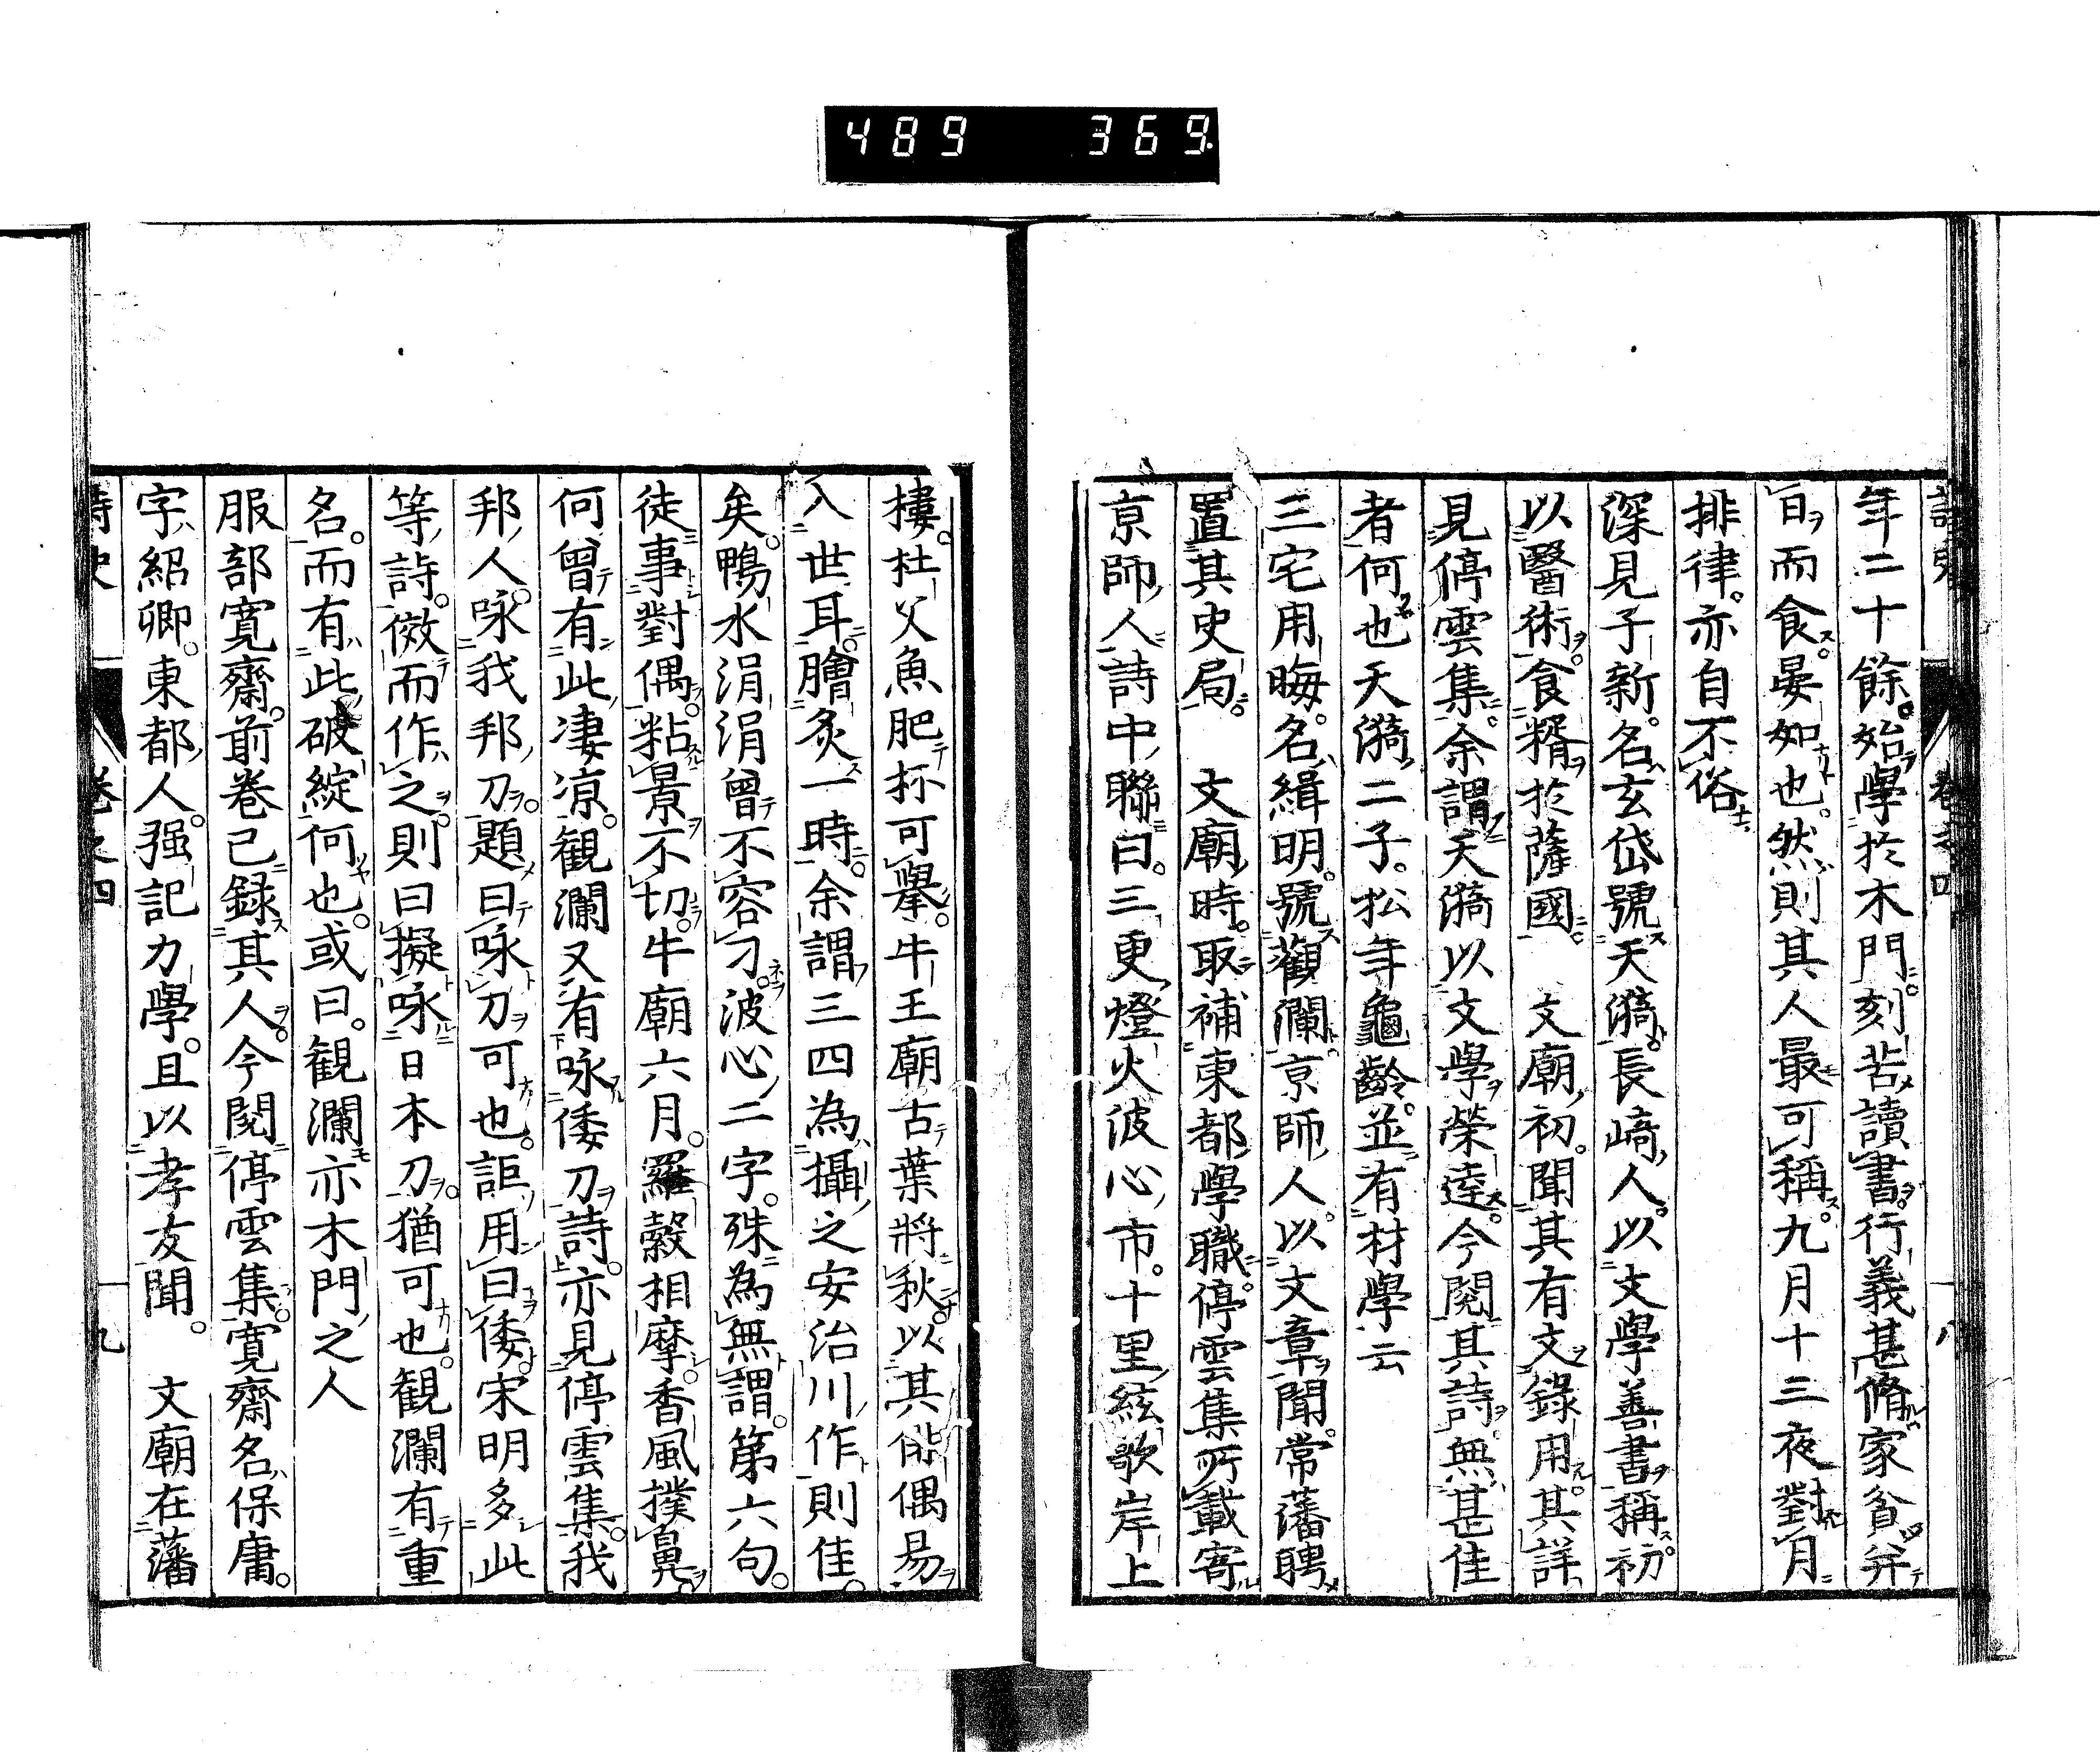 489 369.
詩史 卷之四 八
年二十餘。始學於木門。刻苦讀書。行義甚脩。家貧。幷
日而食。晏如也。然則其人最可稱。九月十三夜對月
排律。亦自不俗
深見子新。名玄岱。號天漪。長崎人。以文學善書稱。初
以醫術。食糈於薩國 文廟初。聞其有文。錄用。其詳
見停雲集。余謂天漪以文學榮達。今閱其詩。無甚佳
者何也。天漪二子。松年龜齡。並有材學云
三宅用晦。名緝明。號觀瀾。京師人。以文章聞。常藩聘
置其史局。 文廟時。取補東都學職。停雲集所載寄
京師人詩中聯曰。三更燈火波心市。十里絃歌岸上
樓。杜父魚肥杯可擧。牛王廟古葉將秋。以其能偶易
入世耳。膾炙一時。余謂三四為攝之安治川作則佳。
矣。鴨水涓涓曾不容刀。波心二字。殊為無謂。第六句。
徒事對偶。粘景不切。牛廟六月。羅縠相摩。香風撲鼻。
何曾有此凄凉。観瀾又有咏倭刀詩。亦見停雲集。我
邦人。咏我邦刀。題曰咏刀可也。詎用曰倭。宋明多此
等詩。倣而作之。則曰擬咏日本刀。猶可也。観瀾有重
名。而有此破綻何也。或曰。観瀾亦木門之人
服部寛齋。前卷已録其人。今閲停雲集。寛齋名保庸。
字紹卿。東都人。强記力學。且以孝友聞。 文廟在藩
詩史 卷之四 九